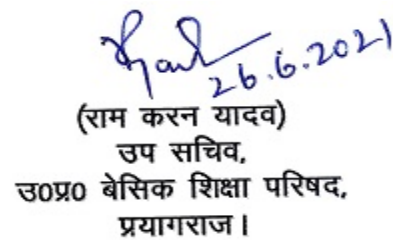 26.6.2021
(राम करन यादव)
उप सचिव,
उ०प्र० बेसिक शिक्षा परिषद,
प्रयागराज।